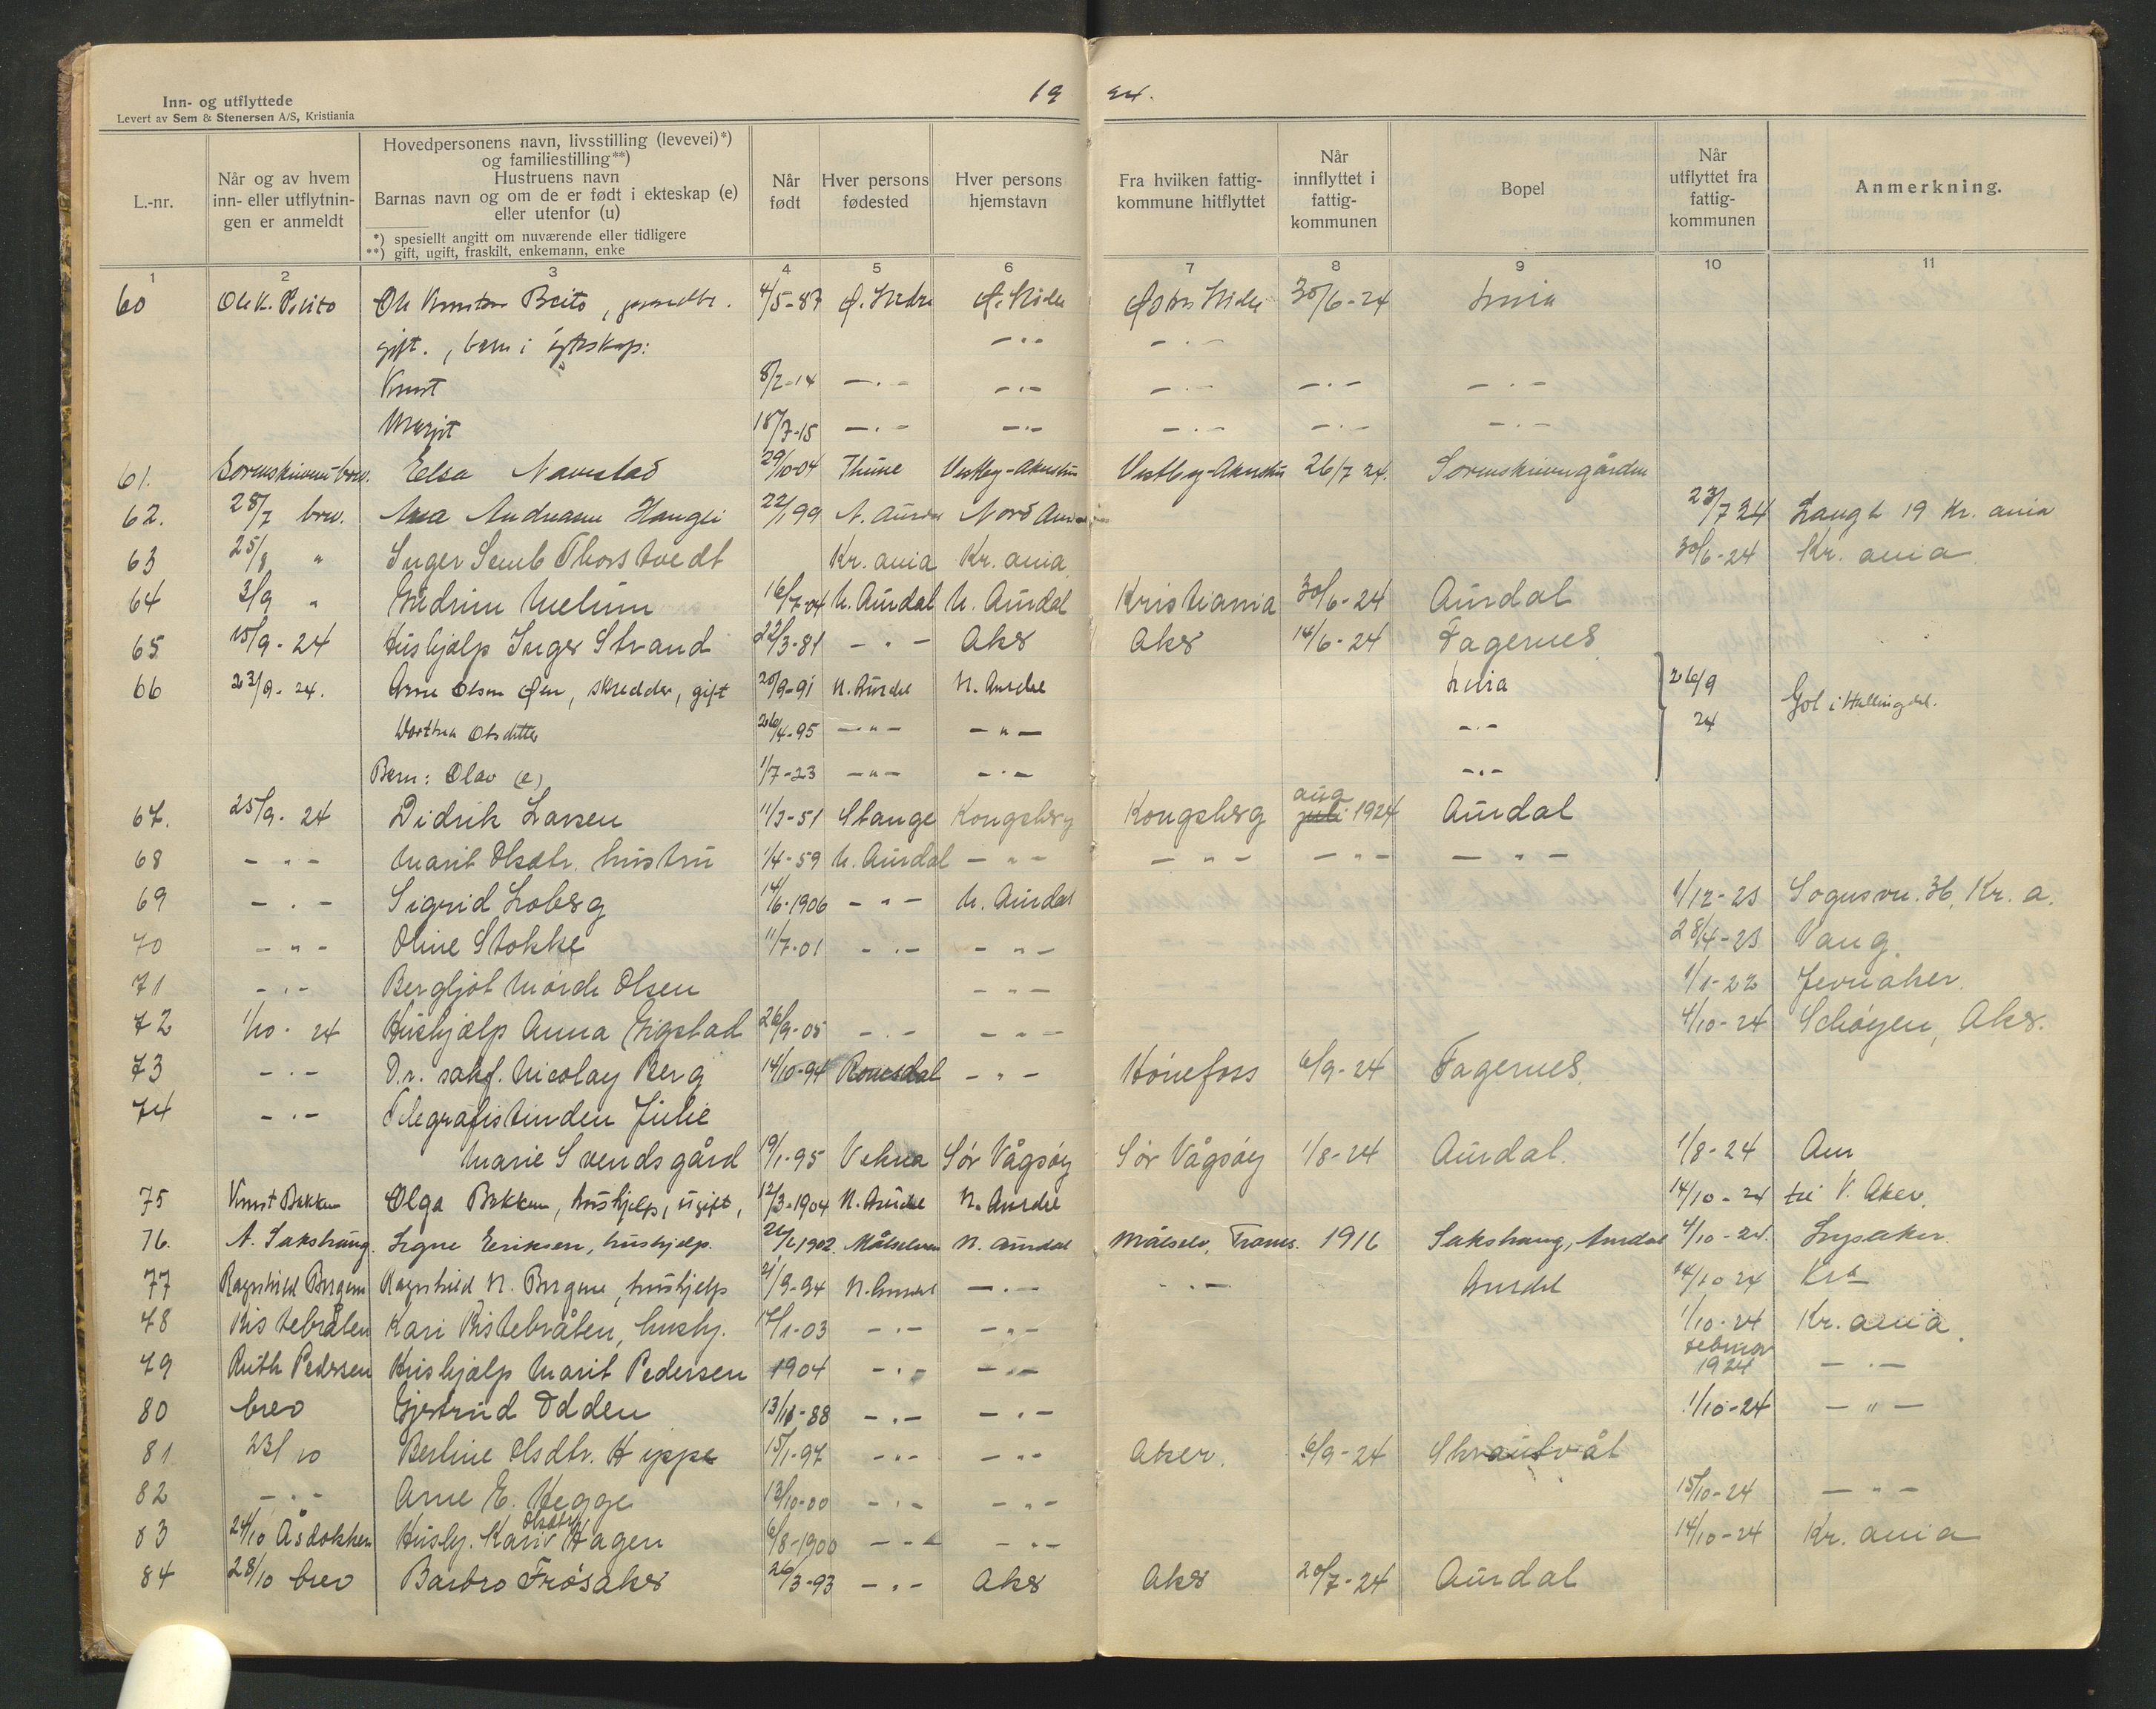 Inn- og utflyttede
Levert av Sem & Stenersen A/S, Kristiania
19 24.
L.-nr. Når og av hvem inn- eller utflytningen er anmeldt Hovedpersonens navn, livsstilling (levevei)*) og familiestilling**) Hustruens navn Barnas navn og om de er født i ekteskap (e) eller utenfor (u) *) spesiellt angitt om nuværende eller tidligere **) gift, ugift, fraskilt, enkemann, enke Når født Hver persons fødested Hver persons hjemstavn Fra hviiken fattigkommune hitflyttet Når innflyttet i fattigkommunen Bopel Når utflyttet fra fattigkommunen Anmerkning.
1 2 3 4 5 6 7 8 9 10 11
60 Ole K. Beito Ole Knutsen Beito, 4/5-87 Ø. Slidre Ø. Slidre Østre Slidre 30/6-24
gift., barn i ægteskap: -"- -"-
Knut 8/2-14 -"- -"- -"- -"- -"-
Margit 18/7-15 -"- -"- -"- -"- -"-
61. Sorenskriveren brev. Elsa Navestad 29/10-04 Thune Vestby-Akershus Vestby-Akershus 26/7 24. Sorenskrivergården
62. 28/7 brev. Haugli 22/1 99 N. Aurdal Nord Aurdal 23/7 24 Langt 19 Kr. ania
63 25/8 " Inger Semb Thorstvedt Kr. ania Kr. ania 30/6-24 Kr. ania
64 3/9 " Gudrun Melum 16/7-04 N. Aurdal N. Aurdal Kristiania 30/6-24 Aurdal
65 15/9-24 Hushjælp Inger Strand 22/3-81 -"- Aker Aker 14/6-24 Fagernes
66 23/9-24. Arne Olsen Øen, skredder, gift 20/9-91 N. Aurdal N. Aurdal 26/9 Gol i Hallingdal.
Marthea Olsdtter 26/4-95 -"- -"- -"- 24
Barn: Olav (e) 1/7-23 -"- -"- -"-
67. 25/9-24 Didrik Larsen 11/3-51 Stange Kongsberg Kongsberg aug juli 1924 Aurdal
68 -"- Marit Olsdtr. hustru 1/4-59 N. Aurdal -"- -"- -"- -"-
69 -"- Sigrid Loberg 14/6-1906 -"- N. Aurdal 1/12-23 Sognsvn. 36, Kr. a.
70 -"- Oline Stokke 11/7-01 -"- -"- 28/4-23 Vang
71 -"- Bergljot Olsen -"- 1/1-22 Jevnaker.
72 1/10-24 Hushjælp Anna Gigstad 26/9-05 -"- -"- 4/10-24 Schøyen, Aker.
73 -"- O.r. sakf. Nicolay Berg 14/10-94 Romsdal -"- Hønefoss 6/9-24 Fagernes
74 -"- Telegrafistinden Julie
Marie Svendsgård 19/1-95 Sør Vågsøy Sør Vågsøy 1/8-24 Aurdal. 1/8-24
75 Knut Bakken Olga Bakken, hushjelp, ugift, 12/3-1904 N. Aurdal N. Aurdal 14/10-24 til V. Aker.
76. A. Sakshaug. Signe Eriksen, hushjelp. 26/1 1902. Målselven N. Aurdal Målselv, Troms. 1916 Sakshaug, Aurdal 4/10-24. Lysaker.
77 Ragnhild Bergene Ragnhild N. Bergene, hushjelp 21/9-94 N. Aurdal -"- -"- Aurdal 14/10 24 Kra
78 Ristebråten Kari Ristebråten, hushj. 17/1-03 -"- -"- 1/10-24 Kr. ania.
79 Ruth Pedersen Hushjælp Marit Pedersen 1904 -"- -"- februar 1924 -"-
80 brev Gjertrud Odden 13/11-88 -"- -"- 1/10-24 -"-
81 23/10 Berline Olsdtr. Hippe 15/1-97 -"- -"- Aker. 6/9-24 Skrautvål
82 -"- Arne E. Hegge 13/10-00 -"- -"- 15/10-24 -"-
83 24/10 Åsdokken Hushj. Kari Olsdtr Hagen 6/8-1900 -"- -"- 14/10-24 Kr. ania
84 28/10 brev Barbro Frøsaker 26/3-93 -"- Aker Aker 20/7-24 Aurdal